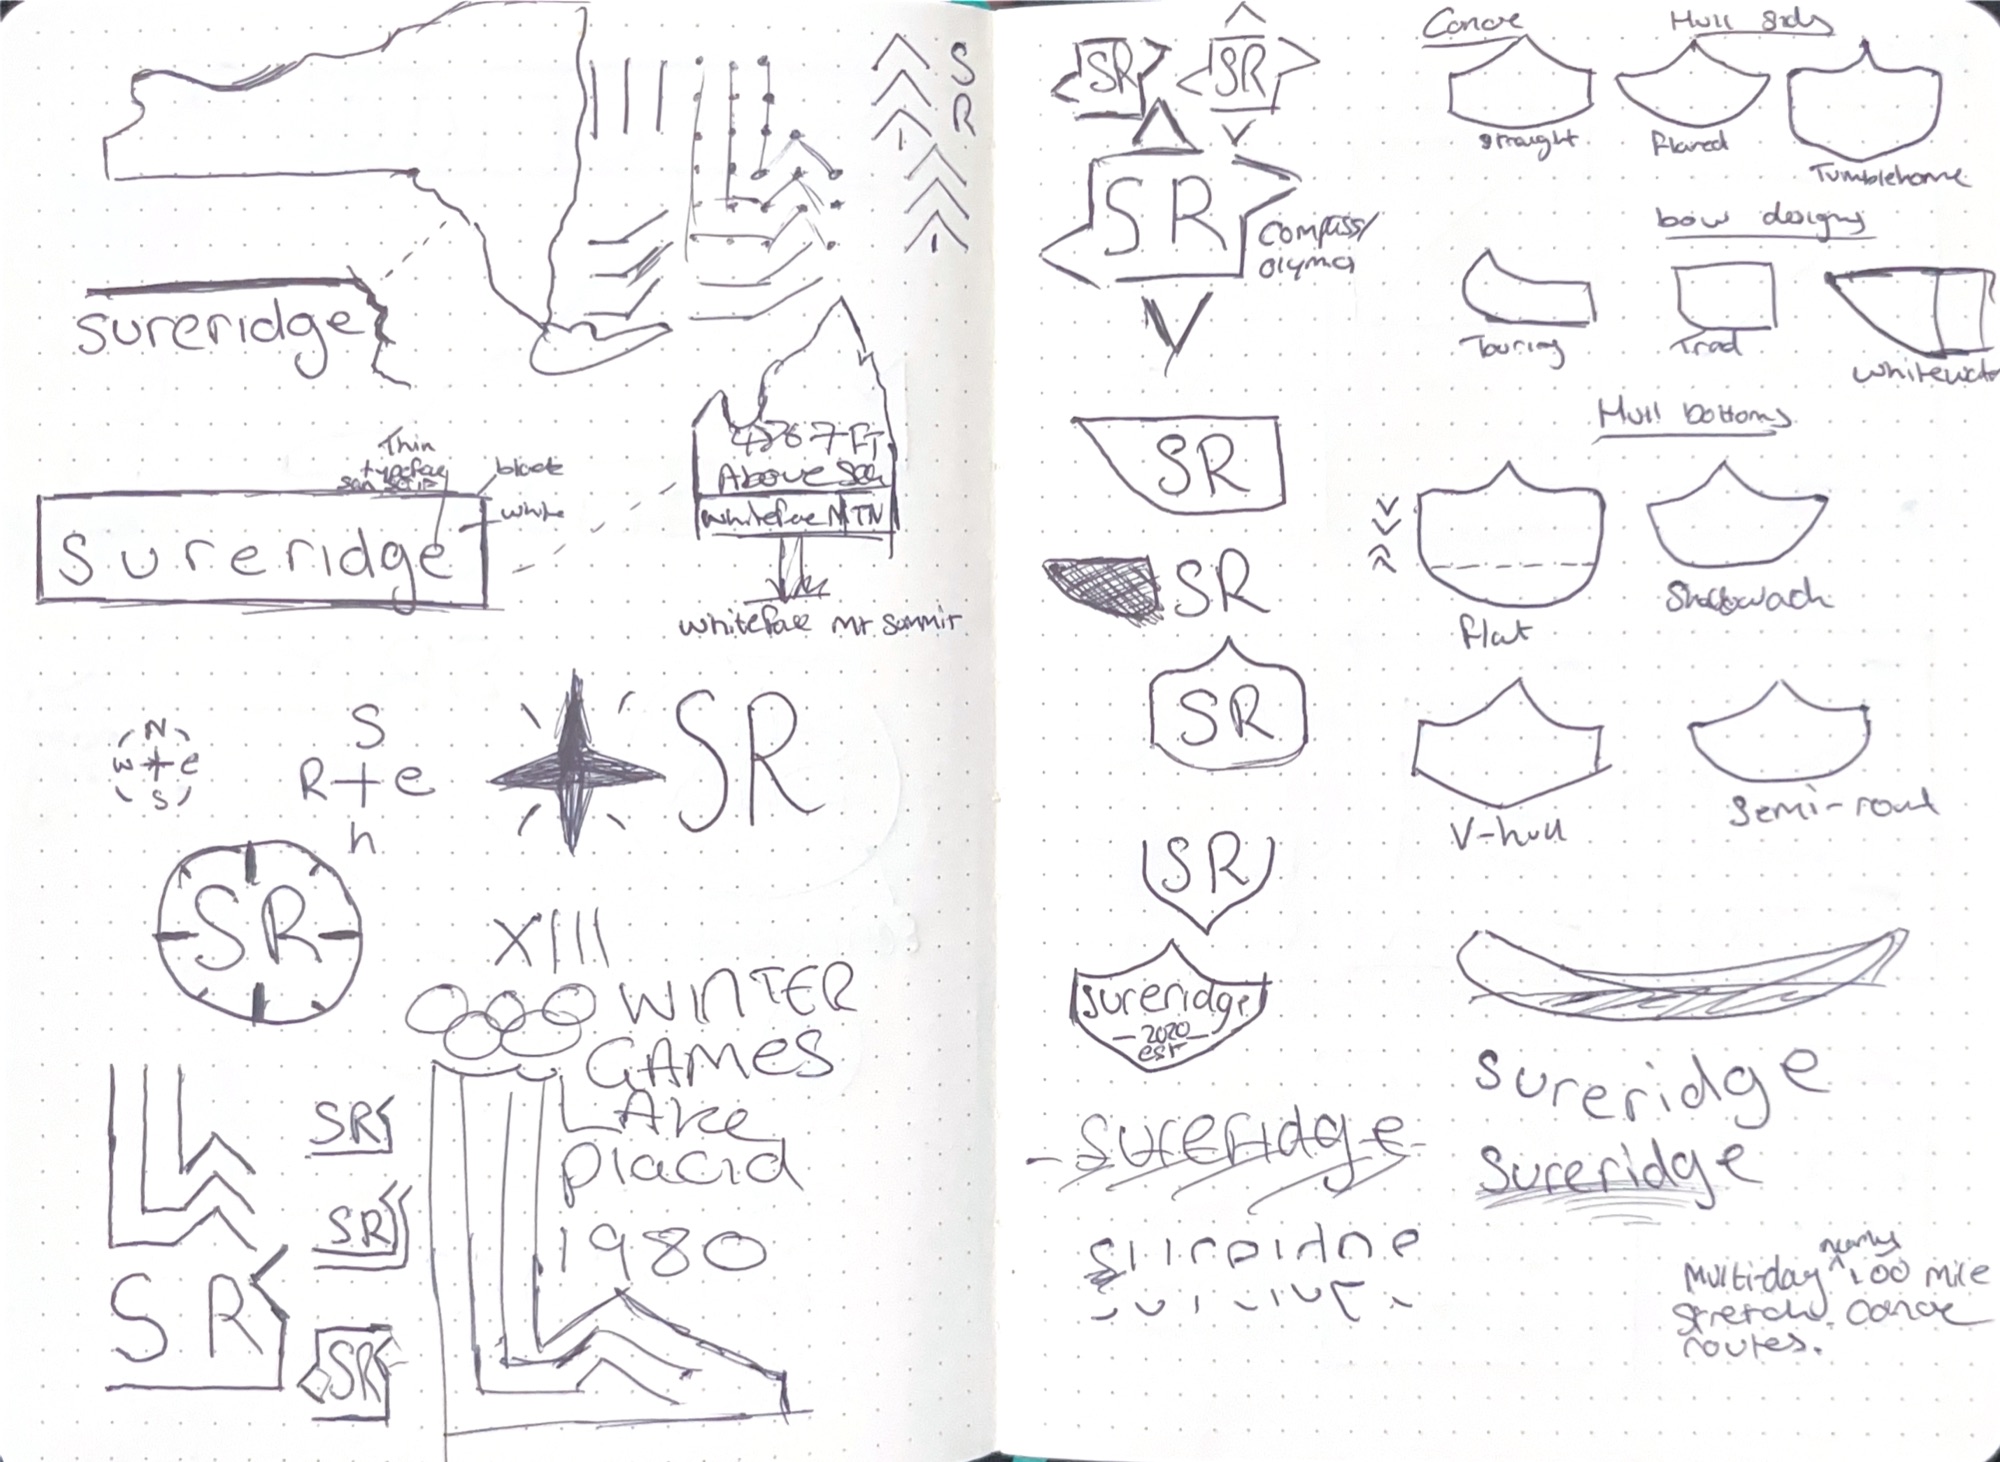 S
R
sureridge
Thin
typeface
san serif
black
white
sureridge
4867 FT
Above Sea
Whiteface MTN
Whiteface Mt Summit
N
W e
S
S
R + e
h
SR
SR
XIII
WINTER
GAMES
LAke
placid
1980
SR
SR
SR
SR
SR
SR
SR
Compass/
SR
SR
SR
SR
sureridge
2020
est
sureridge
Canoe
Hull sides
straight
flared
Tumblehome
bow designs
Touring
Trad
Whitewater
Hull bottoms
flat
V-hull
Semi-round
sureridge
sureridge
nearly
Multi-day 100 mile
stretch. Canoe
routes.